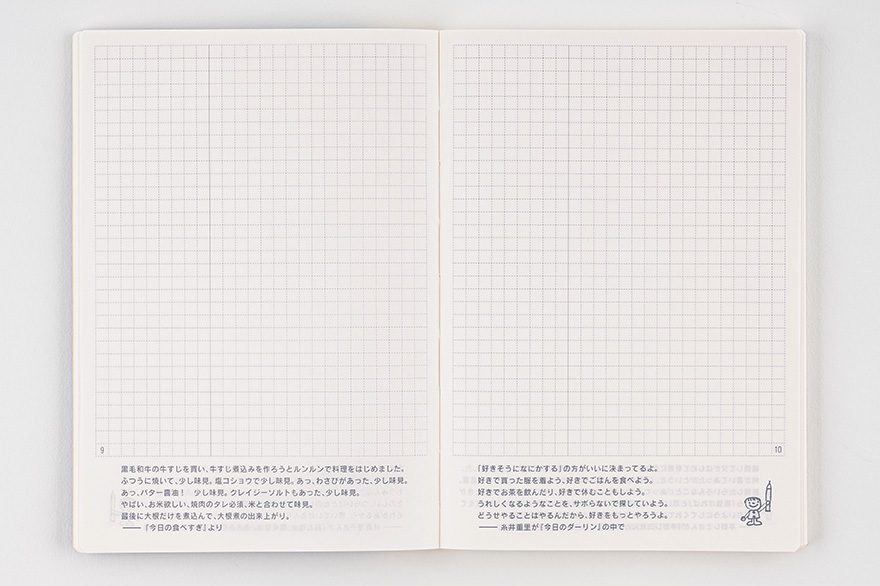 9
黒毛和牛の牛すじを買い、牛すじ煮込みを作ろうとルンルンで料理をはじめました。
ふつうに焼いて、少し味見。塩コショウで少し味見。あっ、わさびがあった、少し味見。
あっ、バター醤油！　少し味見。クレイジーソルトもあった、少し味見。
やばい、お米欲しい、焼肉のタレ必須、米と合わせて味見。
最後に大根だけを煮込んで、大根煮の出来上がり。
――『今日の食べすぎ』より
10
「好きそうになにかする」の方がいいに決まってるよ。
好きで買った服を着よう、好きでごはんを食べよう。
好きでお茶を飲んだり、好きで休むこともしよう。
うれしくなるようなことを、サボらないで探していよう。
どうせやることはやるんだから、好きをもっとやろうよ。
――糸井重里が『今日のダーリン』の中で